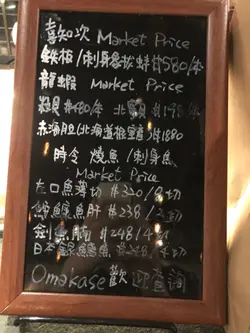 喜知次 Market Price
鉄板/刺身 象拔蚌 $580/
龍蝦 Market Price
$480/ 北 $198/
赤海胆(北海道根室) $1880
時令 燒魚/刺身魚
Market Price
左口魚薄切 $320/8切
鮟鱇魚肝 $238/
劍魚腩 $248/4切
日本 鱼 $268/切
Omakase 歡迎查詢